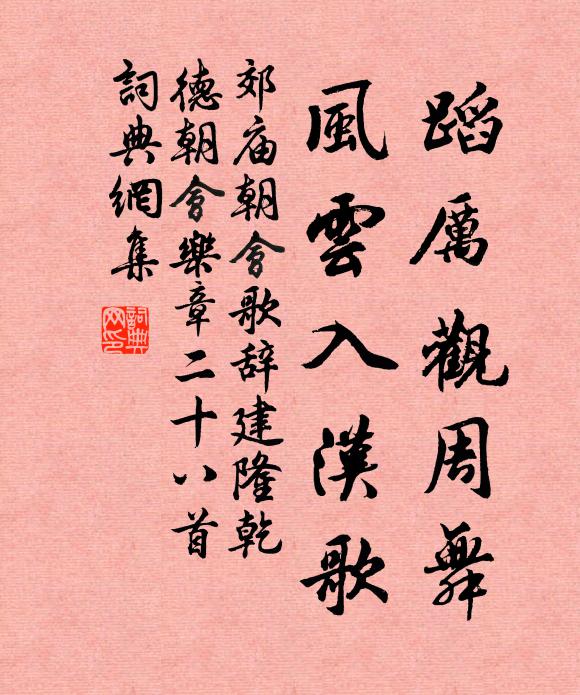 蹈厲觀周舞
風雲入漢歌
郊庙朝會歌辞建隆乾
德朝會樂章二十八首
詞典網集
詞典网印